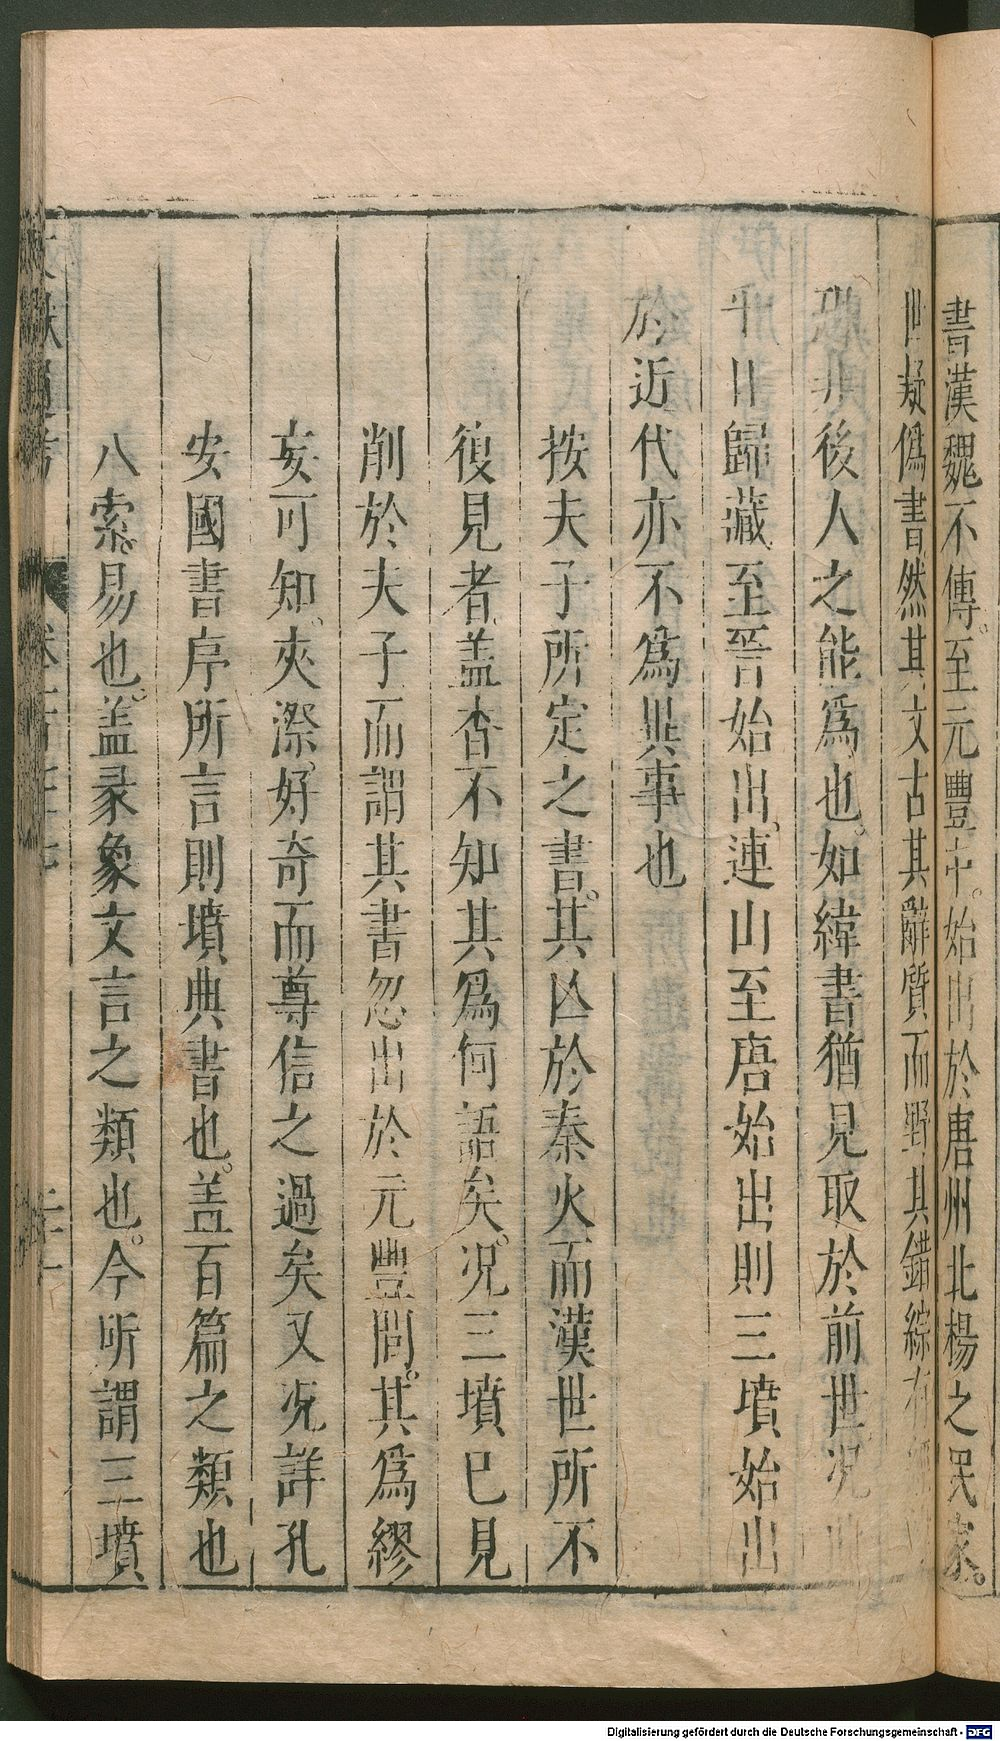 書漢魏不傳。至元豐中。始出於唐州北楊之民家。
世疑偽書。然其文古其辭質而野其錯綜有
恐非後人之能爲也。如緯書猶見取於前世。况
平日歸藏至晉始出。連山至唐始出則三墳始出
於近代亦不爲異事也
按夫子所定之書。其亾於秦火而漢世所不
復見者。盖杳不知其爲何語矣。况三墳已見
削於夫子而謂其書忽出於元豐間。其爲繆
妄可知。夾漈。好奇而尊信之過矣又况詳孔
安國書序所言則墳典書也。盖百篇之類也
八索。易也。盖彖象文言之類也。今所謂三墳
Digitalisierung gefördert durch die Deutsche Forschungsgemeinschaft - DFG